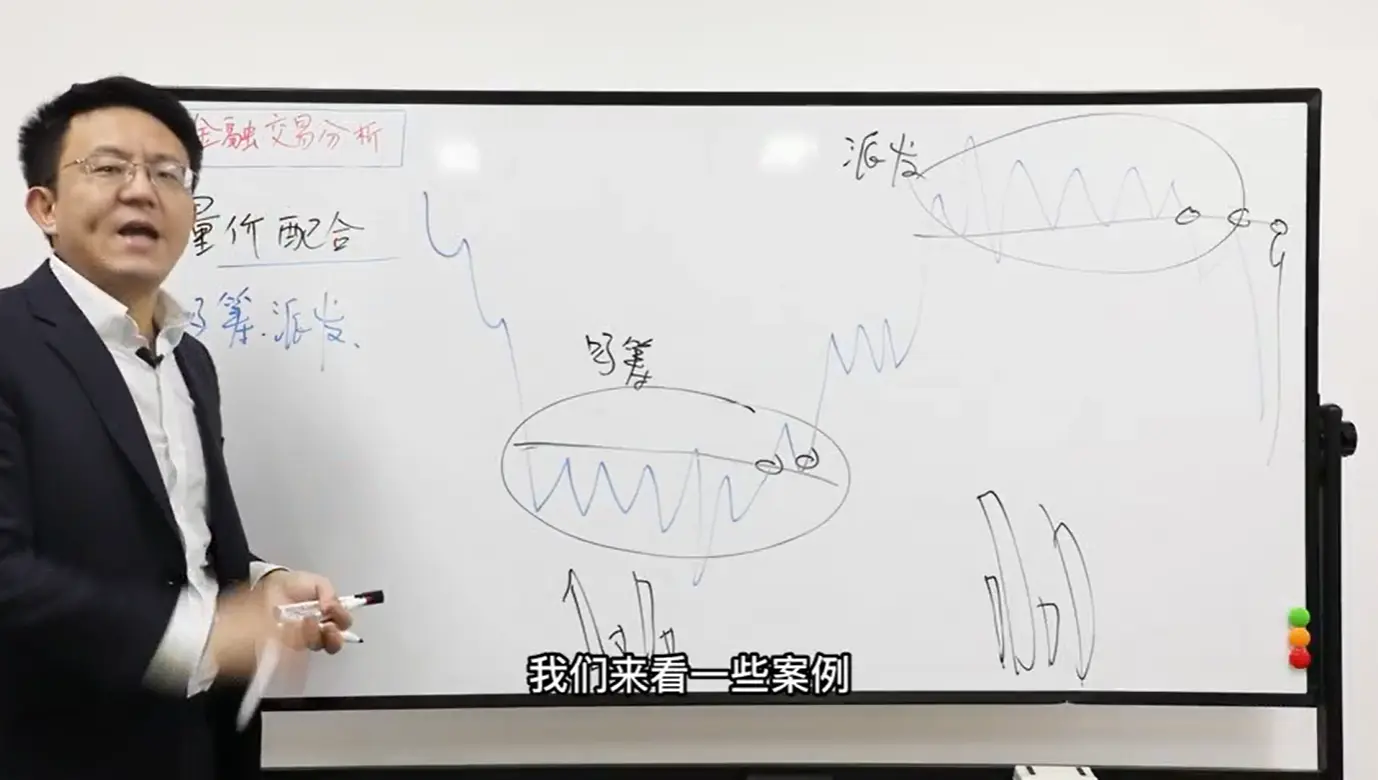 金融交易分析
量价配合
吸筹.派发、
吸筹
派发
我们来看一些案例